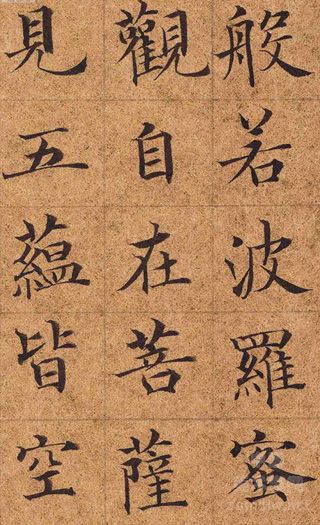 般若波羅蜜
觀自在菩薩
見五蘊皆空